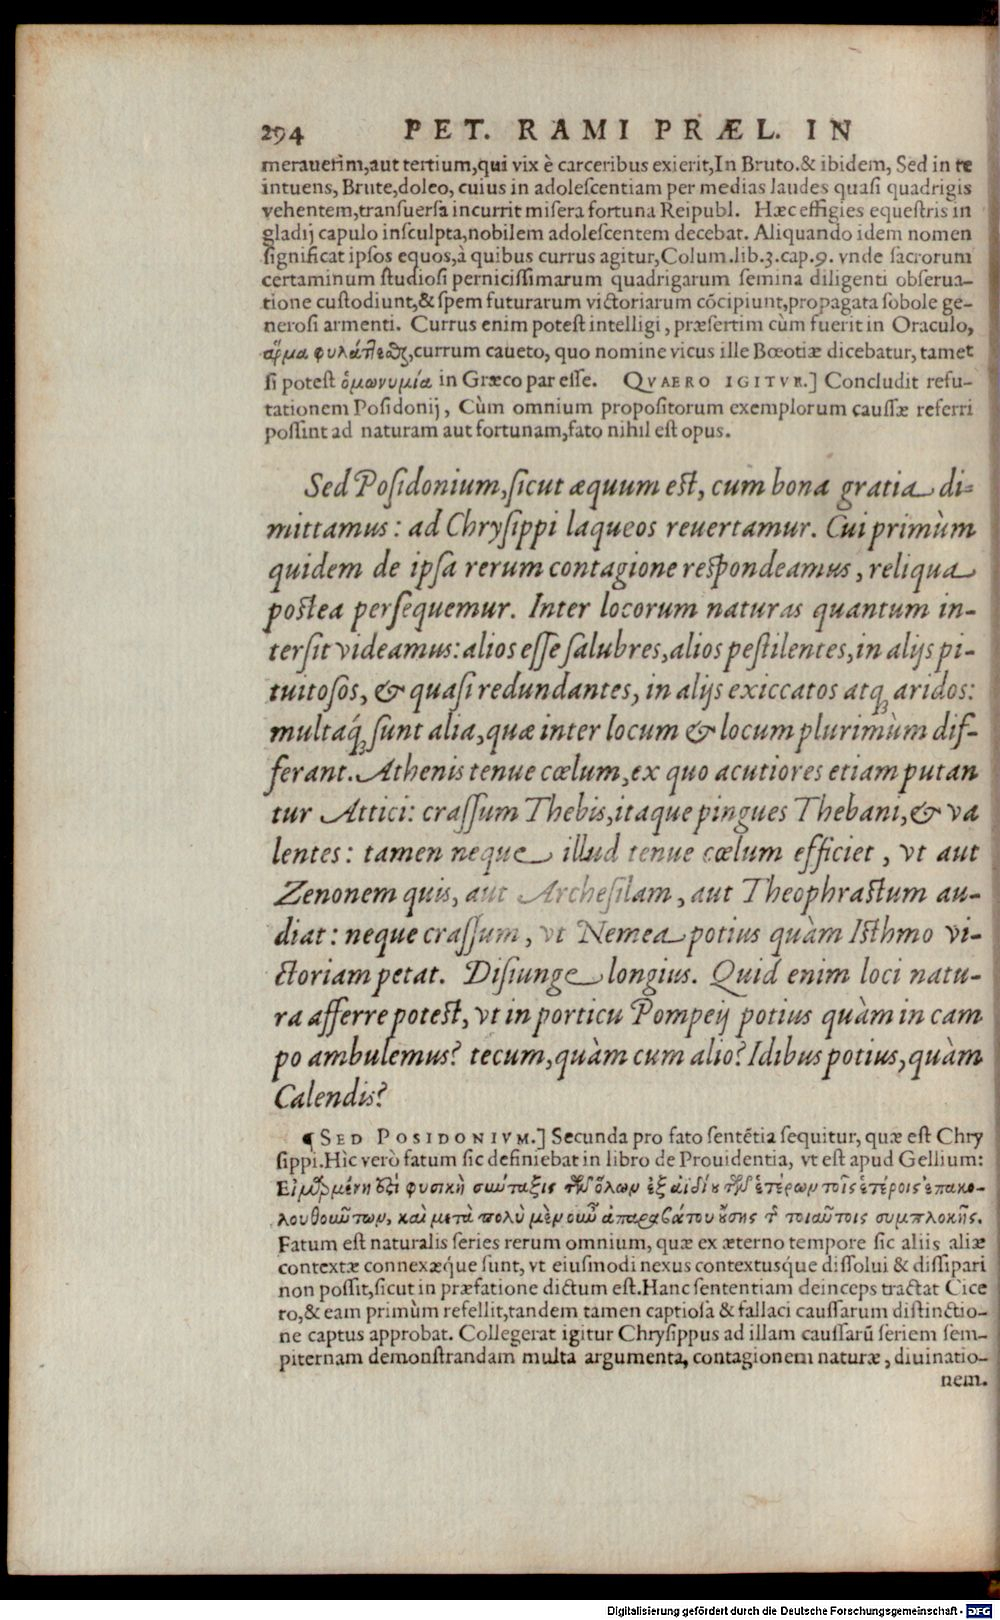 294 PET. RAMI PRÆL. IN
merauerim,aut tertium,qui vix è carceribus exierit,In Bruto.& ibidem, Sed in te
intuens, Brute,doleo, cuius in adolescentiam per medias laudes quasi quadrigis
vehentem,transuersa incurrit misera fortuna Reipubl. Hæc effigies equestris in
gladij capulo insculpta,nobilem adolescentem decebat. Aliquando idem nomen
significat ipsos equos,à quibus currus agitur,Colum.lib.3.cap.9. vnde sacrorum
certaminum studiosi pernicissimarum quadrigarum semina diligenti obserua-
tione custodiunt,& spem futurarum victoriarum cõcipiunt,propagata sobole ge-
nerosi armenti. Currus enim potest intelligi, præsertim cùm fuerit in Oraculo,
ἅρμα φυλάττεσθαι,currum caueto, quo nomine vicus ille Bœotiæ dicebatur, tamet
si potest ὁμωνυμία in Græco par esse. QVAERO IGITVR.] Concludit refu-
tationem Posidonij, Cùm omnium propositorum exemplorum caussæ referri
possint ad naturam aut fortunam,fato nihil est opus.
Sed Posidonium,sicut æquum est, cum bona gratia di-
mittamus: ad Chrysippi laqueos reuertamur. Cui primùm
quidem de ipsa rerum contagione respondeamus, reliqua
postea persequemur. Inter locorum naturas quantum in-
tersit videamus: alios esse salubres,alios pestilentes,in alijs pi-
tuitosos, & quasi redundantes, in alijs exiccatos atq; aridos:
multaq́; sunt alia,quæ inter locum & locum plurimùm dif-
ferant. Athenis tenue cœlum,ex quo acutiores etiam putan
tur Attici: crassum Thebis,itaque pingues Thebani,& va
lentes: tamen neque illud tenue cœlum efficiet, vt aut
Zenonem quis, aut Archesilam, aut Theophrastum au-
diat: neque crassum, vt Nemea potius quàm Isthmo vi-
ctoriam petat. Disiunge longius. Quid enim loci natu-
ra afferre potest, vt in porticu Pompeij potius quàm in cam
po ambulemus? tecum,quàm cum alio? Idibus potius,quàm
Calendis?
¶ SED POSIDONIVM.] Secunda pro fato sentẽtia sequitur, quæ est Chry
sippi.Hic verò fatum sic definiebat in libro de Prouidentia, vt est apud Gellium:
Εἱμαρμένη ἐστὶ φυσικὴ σύνταξις τῶν ὅλων ἐξ ἀϊδίου τῶν ἑτέρων τοῖς ἑτέροις ἐπακο-
λουθούντων, καὶ μετὰ πολὺ μὲν οὖν ἀπαραβάτου οὔσης τῆς τοιαύτοις συμπλοκῆς.
Fatum est naturalis series rerum omnium, quæ ex æterno tempore sic aliis aliæ
contextæ connexæque sunt, vt eiusmodi nexus contextusque dissolui & dissipari
non possit,sicut in præfatione dictum est.Hanc sententiam deinceps tractat Cice
ro,& eam primùm refellit,tandem tamen captiosa & fallaci caussarum distinctio-
ne captus approbat. Collegerat igitur Chrysippus ad illam caussarũ seriem sem-
piternam demonstrandam multa argumenta, contagionem naturæ, diuinatio-
nem.
Digitalisierung gefördert durch die Deutsche Forschungsgemeinschaft - DFG